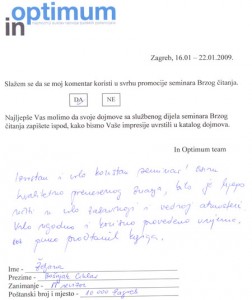 in optimum
Zagreb, 16.01 – 22.01.2009.
Slažem se da se moj komentar koristi u svrhu promocije seminara Brzog čitanja.
DA NE
Najljepše Vas molimo da svoje dojmove sa službenog dijela seminara Brzog
čitanja zapišete ispod, kako bismo Vaše impresije uvrstili u katalog dojmova.
In Optimum team
Izvrstan i vrlo koristan seminar!
kvalitetno prenesenog znanja,
i vrlo i vedroj atmosferi
Vrlo ugodno i korisno provedeno vrijeme.
puno pročitanih knjiga.
Ime - Željana
Prezime -
Zanimanje -
Poštanski broj i mjesto - 10 000 Zagreb